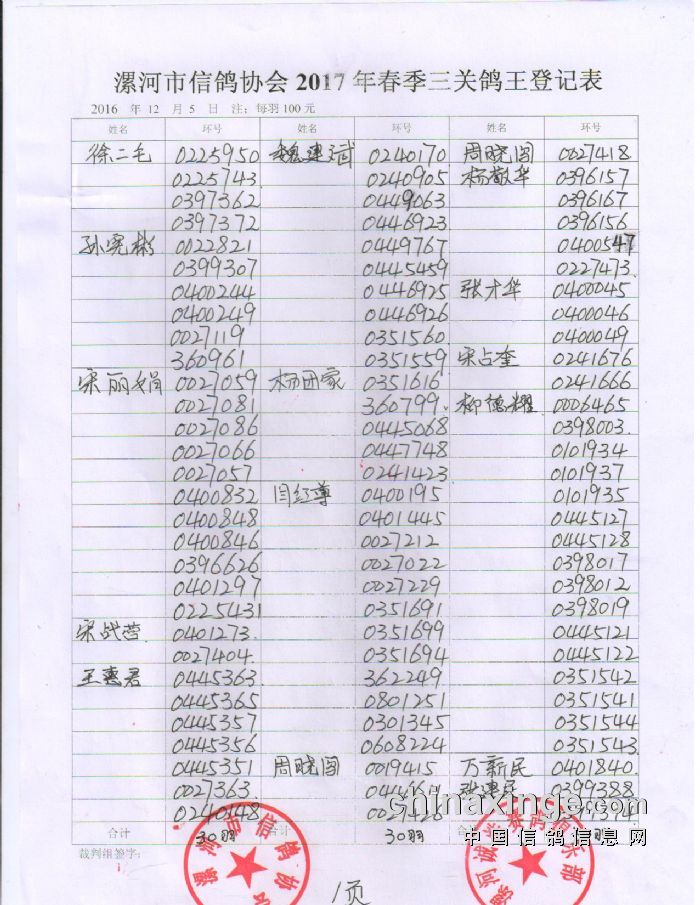 漯河市信鸽协会 2017 年春季三关鸽王登记表
2016 年 12 月 5 日 注：每羽 100 元
姓名 环号 姓名 环号 姓名 环号
徐二毛 0225950 魏建斌 0240170 周晓阁 0027418
0225743 0240905 杨敬华 0396157
0397362 0449063 0396167
0397372 0446923 0396156
孙宪彬 0022821 0449767 0400547
0399307 0445459 0227473
0400244 0446925 张才华 0400045
0400249 0446926 0400046
0027119 0351560 0400049
360961 0351559 宋占奎 0241676
宋丽娟 0027059 杨田家 0351616 0241666
0027081 360799 柳德耀 0006465
0027086 0445068 0398003
0027066 0447748 0101934
0027057 0241423 0101937
0400832 闫红尊 0400195 0101935
0400848 0401445 0445127
0400846 0027212 0445128
0396626 0027022 0398017
0401297 0027229 0398012
0225431 0351691 0398019
宋战营 0401273 0351699 0445121
0027404 0351694 0445122
王惠君 0445363 362249 0351542
0445365 0801251 0351541
0445357 0301345 0351544
0445356 0608224 0351543
0445351 周晓阁 0019415 万新民 0401840
0027363 张惠民 0399388
0240148 0027426
合计 30羽 合计 30羽 合计 羽
裁判组签字：
漯河市信鸽协会
1页
chinaxinge.com
中国信鸽信息网